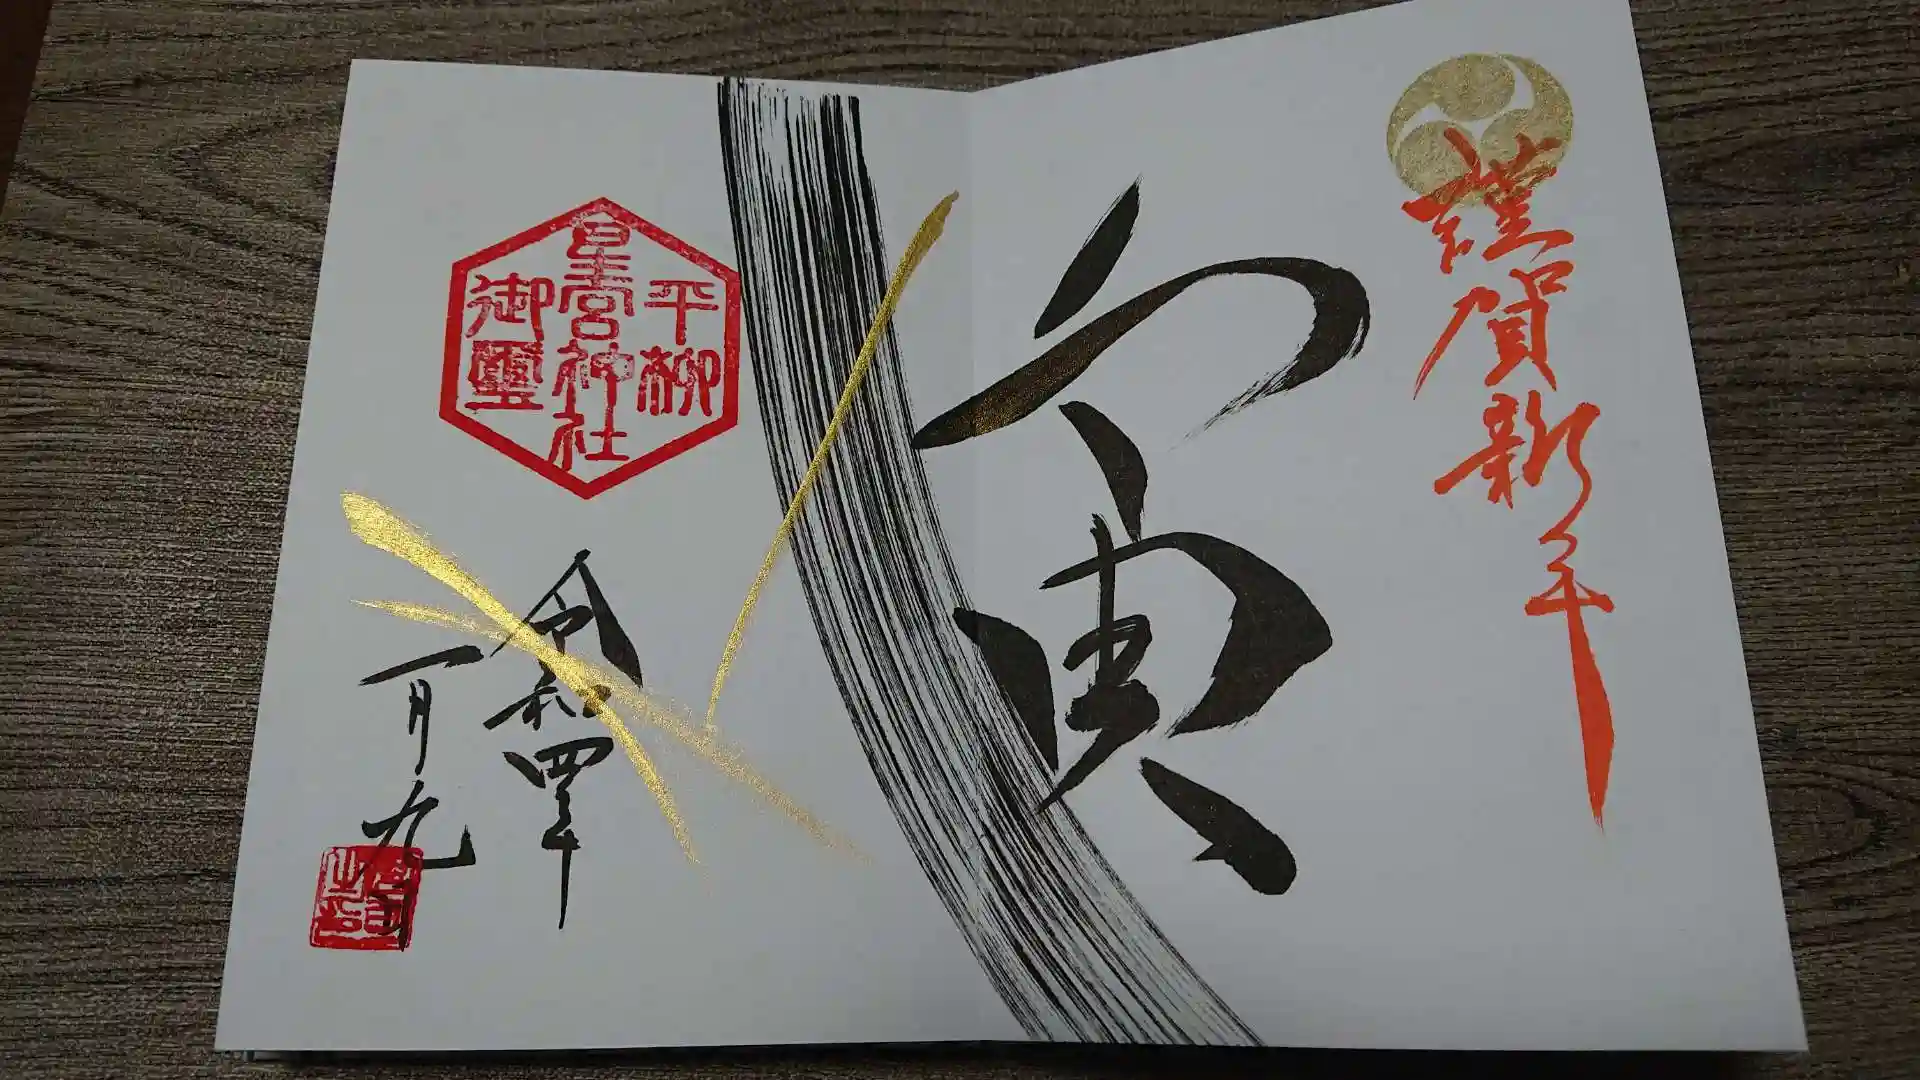 謹賀新年
寅
平柳
皇宮神社
御璽
令和四年
一月九日